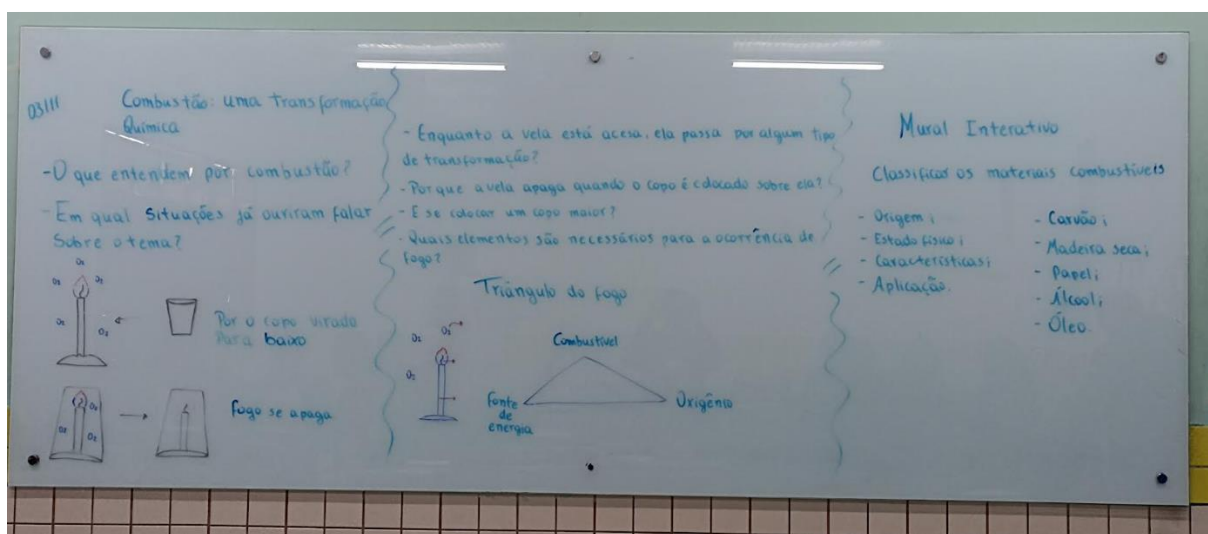 03/11
Combustão: uma transformação
Química
-O que entendem por combustão?
-Em qual Situações já ouriram falar
Sobre o tema?
O₂
O₂ O₂
O₂ O₂
Por o copo virado
Para baixo
O₂
O₂ O₂
fogo se apaga
- Enquanto a vela está acesa, ela passa por algum tipo
de transformação?
- Por que a vela apaga quando o copo é colocado sobre ela?
- E se colocar um copo maior?
- Quais elementos são necessários para a ocorrência de
fogo?
Triângulo do fogo
O₂ O₂
O₂
Combustível
fonte
de
energia
Oxigênio
Mural Interativo
Classificar os materiais combustíveis
- Origem;
- Estado físico;
- Características;
- Aplicação.
- Carvão;
- Madeira seca;
- Papel;
- Álcool;
- Óleo.